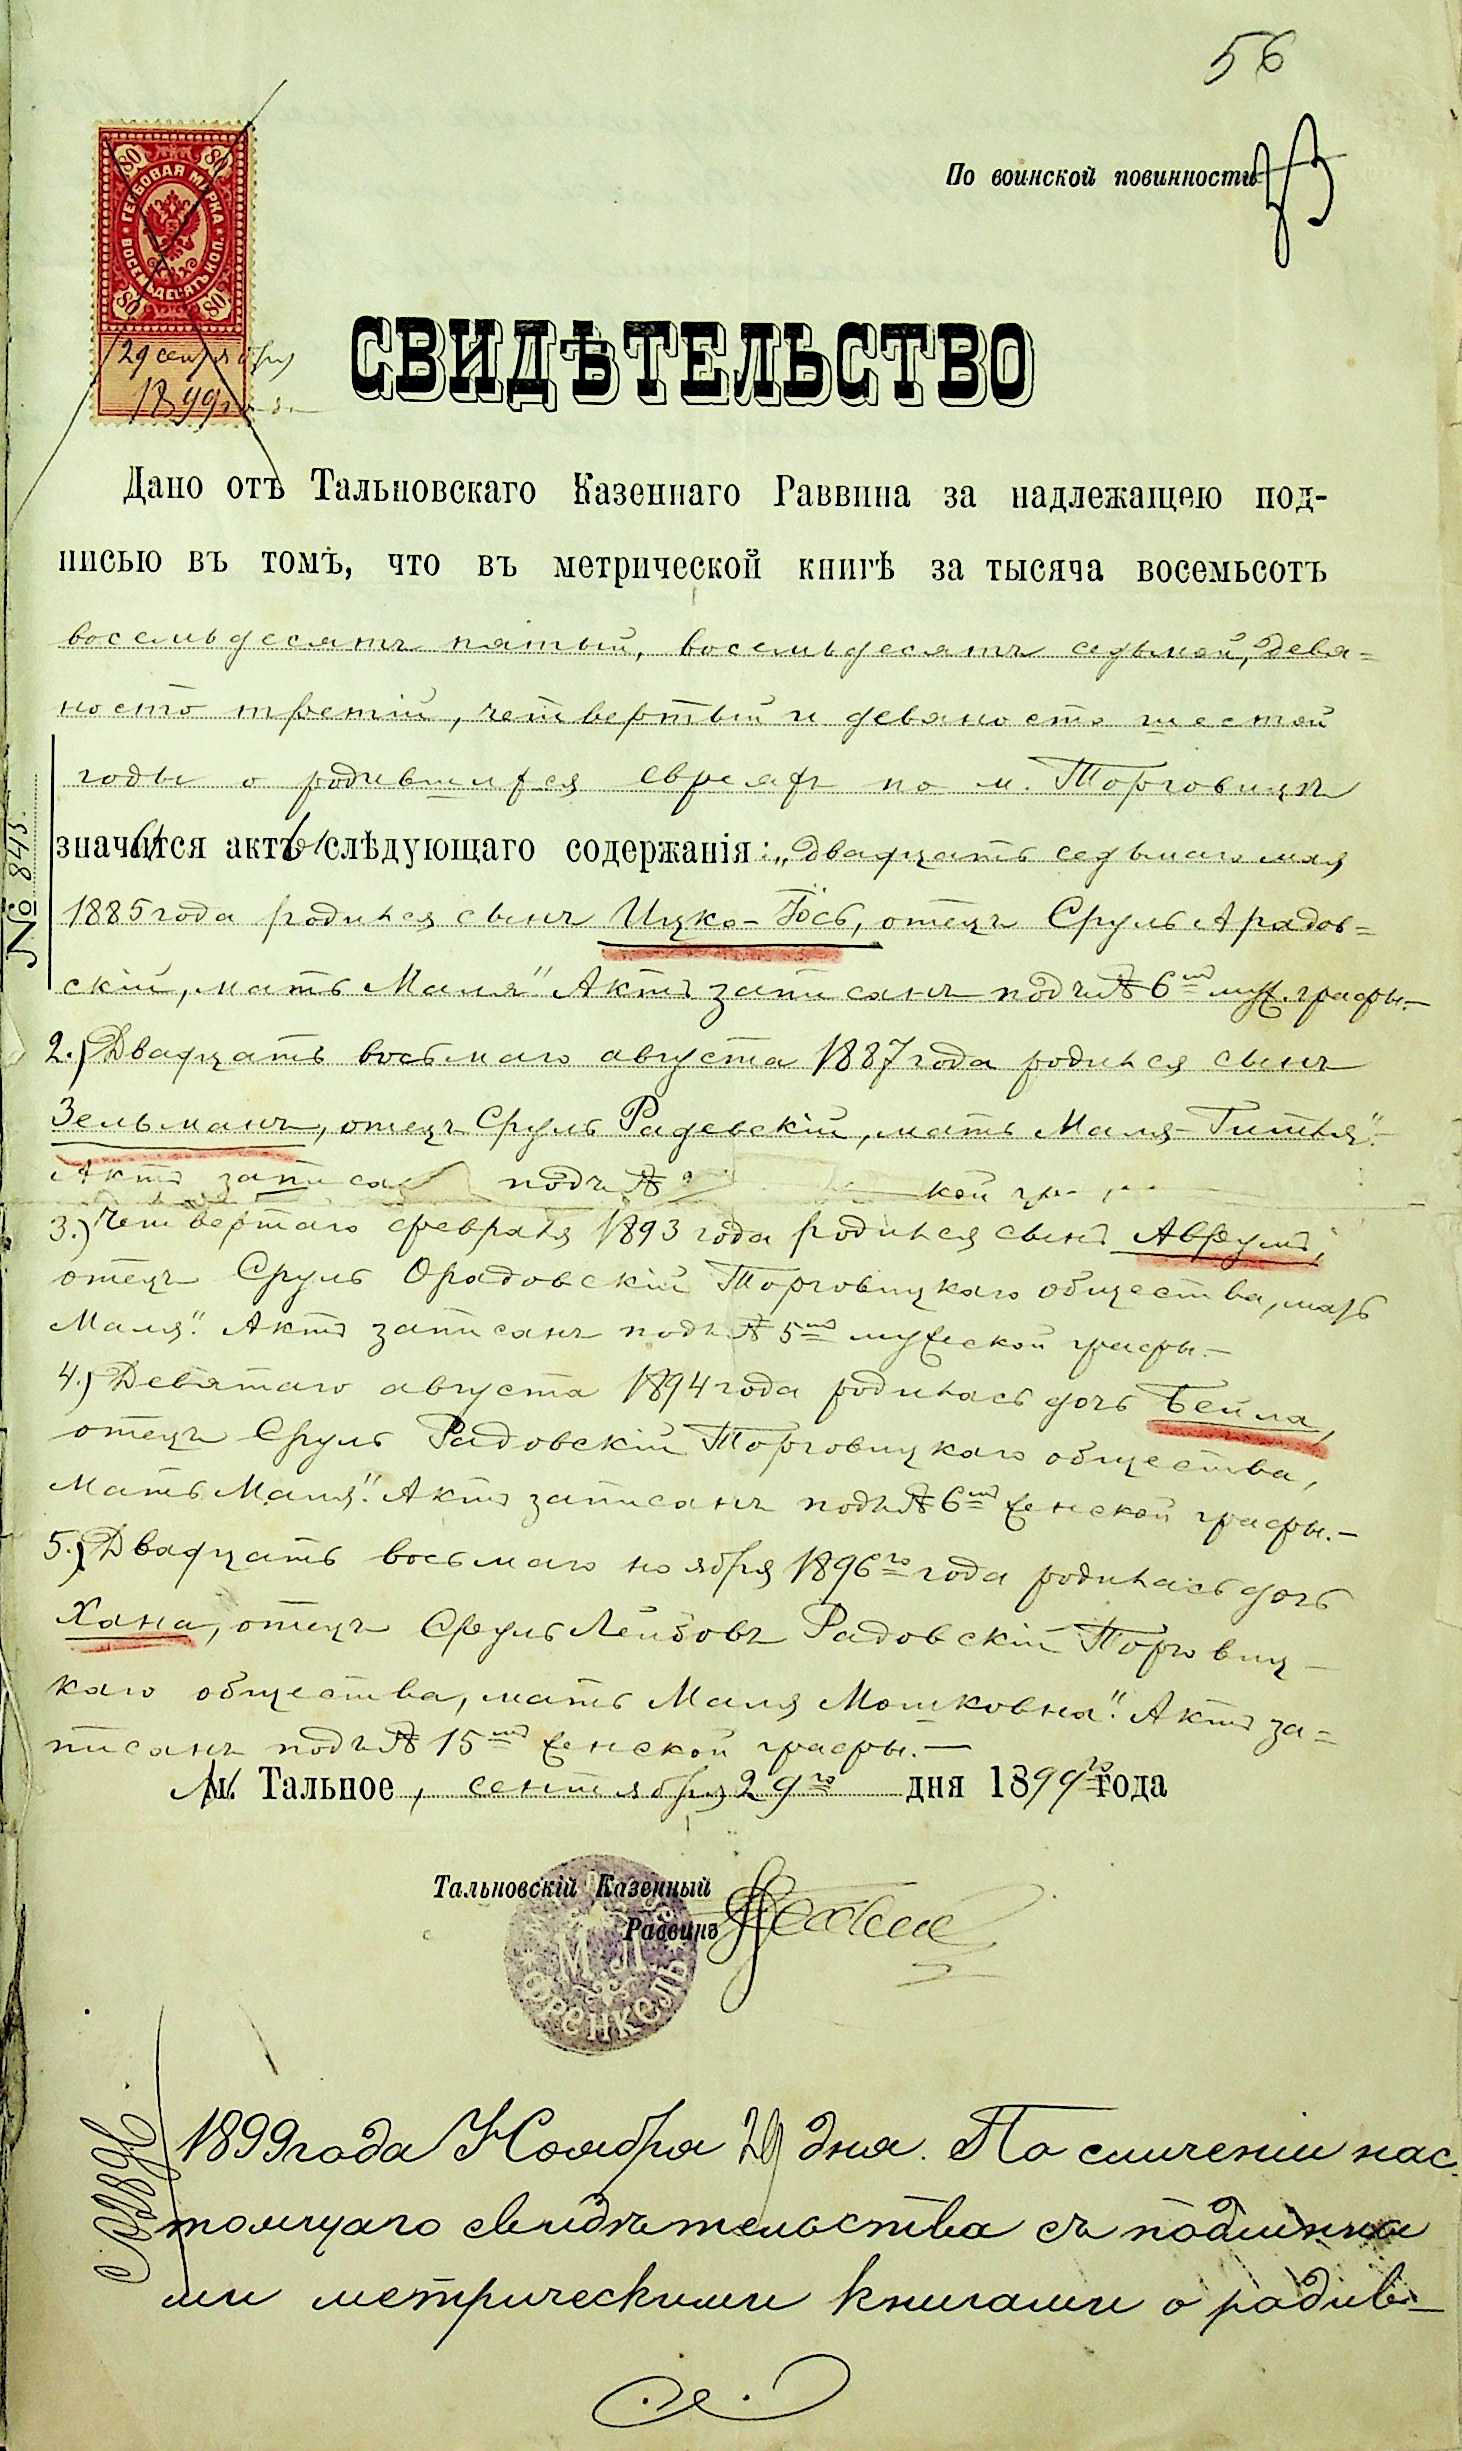 56
По воинской повинности
80 80
ГЕРБОВАЯ МАРКА
ВОСЕМЬДЕСЯТЪ КОП.
80 80
29 сентября
1899 года
СВИДѢТЕЛЬСТВО
Дано отъ Тальновскаго Казеннаго Раввина за надлежащею под-
писью въ томъ, что въ метрической книгѣ за тысяча восемьсотъ
восемьдесятъ пятый, восемьдесятъ седьмой, девя=
носто третій, четвертый и девяносто шестой
годы о родившихся евреяхъ по м. Торговицѣ
№ 845.
значатся акты слѣдующаго содержанія: „Двадцать седьмаго мая
1885 года родился сынъ Ицко-Іось, отецъ Сруль Арадов=
скій, мать Маля" Актъ записанъ подъ № 6мъ муж. графы.—
2.) Двадцать восьмаго августа 1887 года родился сынъ
Зельманъ, отецъ Сруль Радевскій, мать Маля-Гитля".
Актъ записа подъ № кой гр
3.) Четвертаго февраля 1893 года родился сынъ Аврумъ,
отецъ Сруль Орадовскій Торговицкаго общества, мать
Маля". Актъ записанъ подъ № 5мъ мужеской графы.—
4.) Девятаго августа 1894 года родилась дочь Бейла,
отецъ Сруль Радовскій Торговицкаго общества,
мать Маля". Актъ записанъ подъ № 6мъ женской графы.—
5.) Двадцать восьмаго ноября 1896го года родилась дочь
Хана, отецъ Сруль Лейбовъ Радовскій Торговиц-
каго общества, мать Маля Мошковна". Актъ за=
писанъ подъ № 15мъ женской графы.—
М. Тальное, сентября 29го дня 1899го года
Тальновскій Казенный
Раввинъ
М Л
ФРЕНКЕЛЬ
1899 года Ноября 29 дня. По сличеніи нас
тоящаго свидѣтельства съ подлинны
ми метрическими книгами о родив—